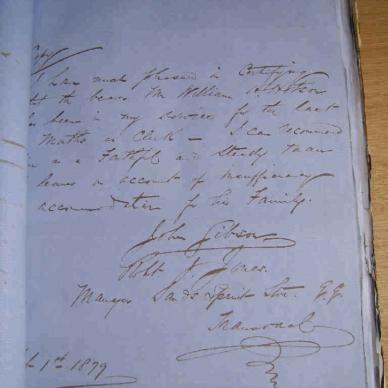 Copy
I have much pleasure in Certifying
that the bearer Mr William
been in my service for the last
Months as Clerk – I can recommend
as a Faithful and Steady man
leaves on account of insufficiency
accommodation for his Family.
John Gibson
Robt J. Jones
Manager Lands Spruit Str. G.
Transvaal
1st 1879